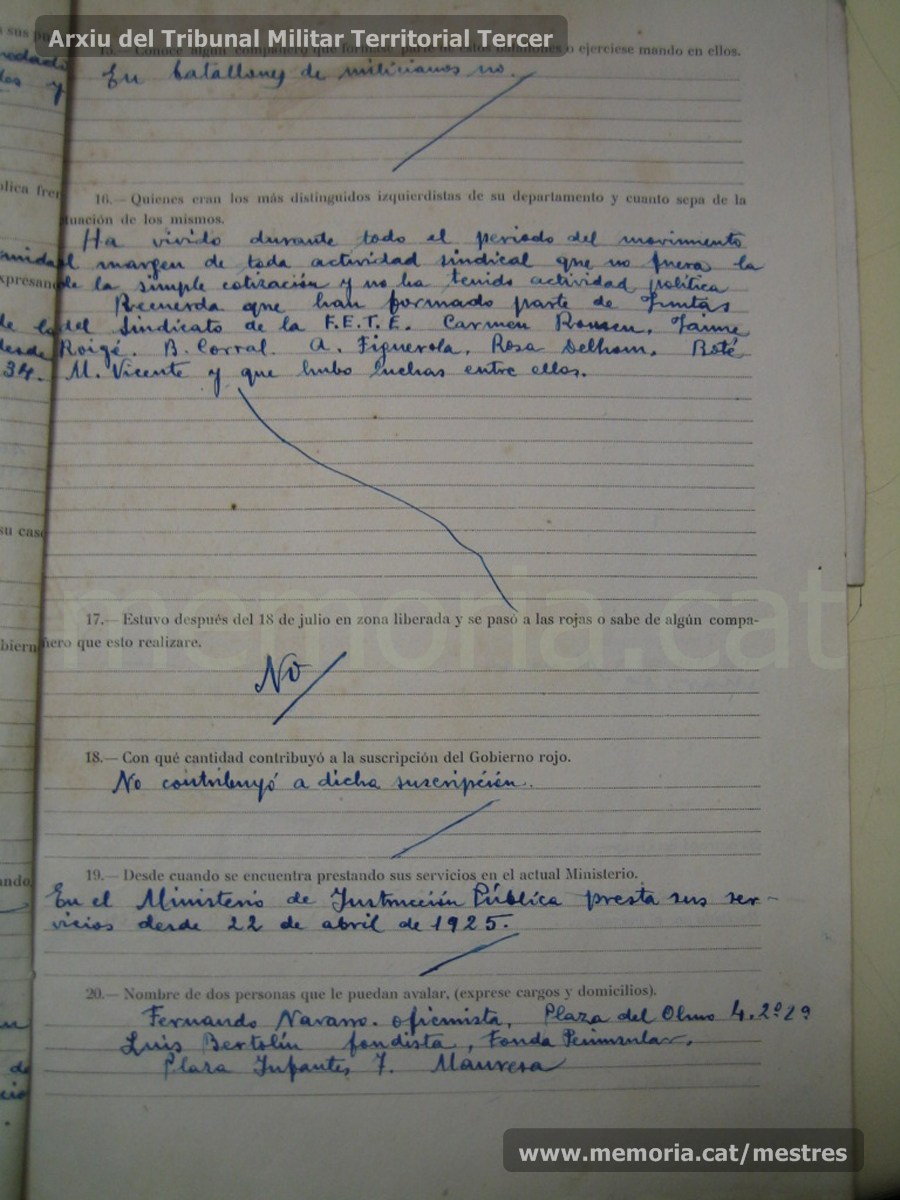 Arxiu del Tribunal Militar Territorial Tercer
15.—Conoce algún compañero que formase parte de estos batallones o ejerciese mando en ellos.
En batallones de milicianos no.
16.—Quienes eran los más distinguidos izquierdistas de su departamento y cuanto sepa de la
tuación de los mismos.
Ha vivido durante todo el periodo del movimiento
al margen de toda actividad sindical que no fuera la
de la simple cotización y no ha tenido actividad política
Recuerda que han formado parte de Juntas
del Sindicato de la F.E.T.E. Carmen Jaime
Roigé. B. Corral. A. Figuerola, Rosa Delhom, Roté
M. Vicente y que hubo luchas entre ellos.
17.—Estuvo después del 18 de julio en zona liberada y se pasó a las rojas o sabe de algún compa-
ñero que esto realizare.
No
18.—Con qué cantidad contribuyó a la suscripción del Gobierno rojo.
No contribuyó a dicha suscripción.
19.—Desde cuando se encuentra prestando sus servicios en el actual Ministerio.
En el Ministerio de Instrucción Pública presta sus ser-
vicios desde 22 de abril de 1925.
20.—Nombre de dos personas que le puedan avalar, (exprese cargos y domicilios).
Fernando Navarro. oficinista, Plaza del Olmo 4. 2º 2ª
Luis Bertolín fondista, Fonda Peninsular,
Plaza Infantes, 7. Manresa
memoria.cat
www.memoria.cat/mestres